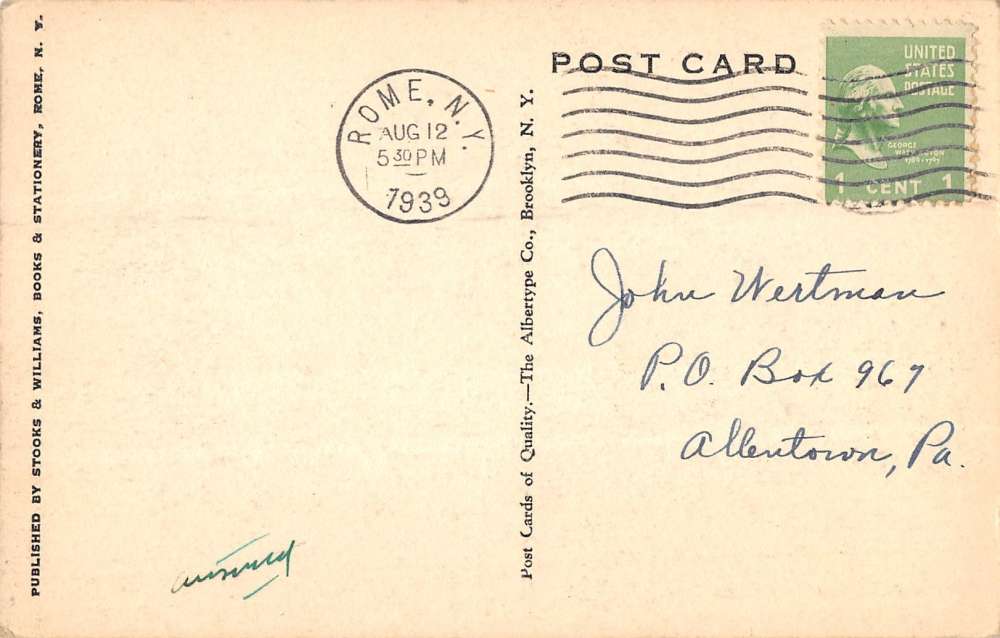 PUBLISHED BY STOOKS & WILLIAMS, BOOKS & STATIONERY, ROME, N. Y.
ROME, N.Y.
AUG 12
5 30 PM
1939
Post Cards of Quality.—The Albertype Co., Brooklyn, N. Y.
POST CARD
UNITED
STATES
POSTAGE
GEORGE
WASHINGTON
1789-1797
1 CENT 1
John Wertman
P.O. Box 967
Allentown, Pa.